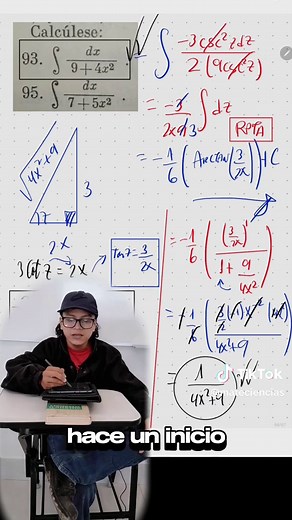 Calcúlese:
93. ∫ dx / 9 + 4x² .
95. ∫ dx / 7 + 5x² .
= ∫ -3csc²z dz / 2(9csc²z)
= -3 / 2x9/3 ∫ dz
RPTA
= -1/6 (Arctan(3/2x)) + C
√4x²+9
3
z
2x
3Cot z = 2x
Tan z = 3/2x
= -1/6 ( (3/2x)' / 1 + 9/4x² )
4x²+9
= 1 / 4x²+9
TikTok
@mateciencias
hace un inicio